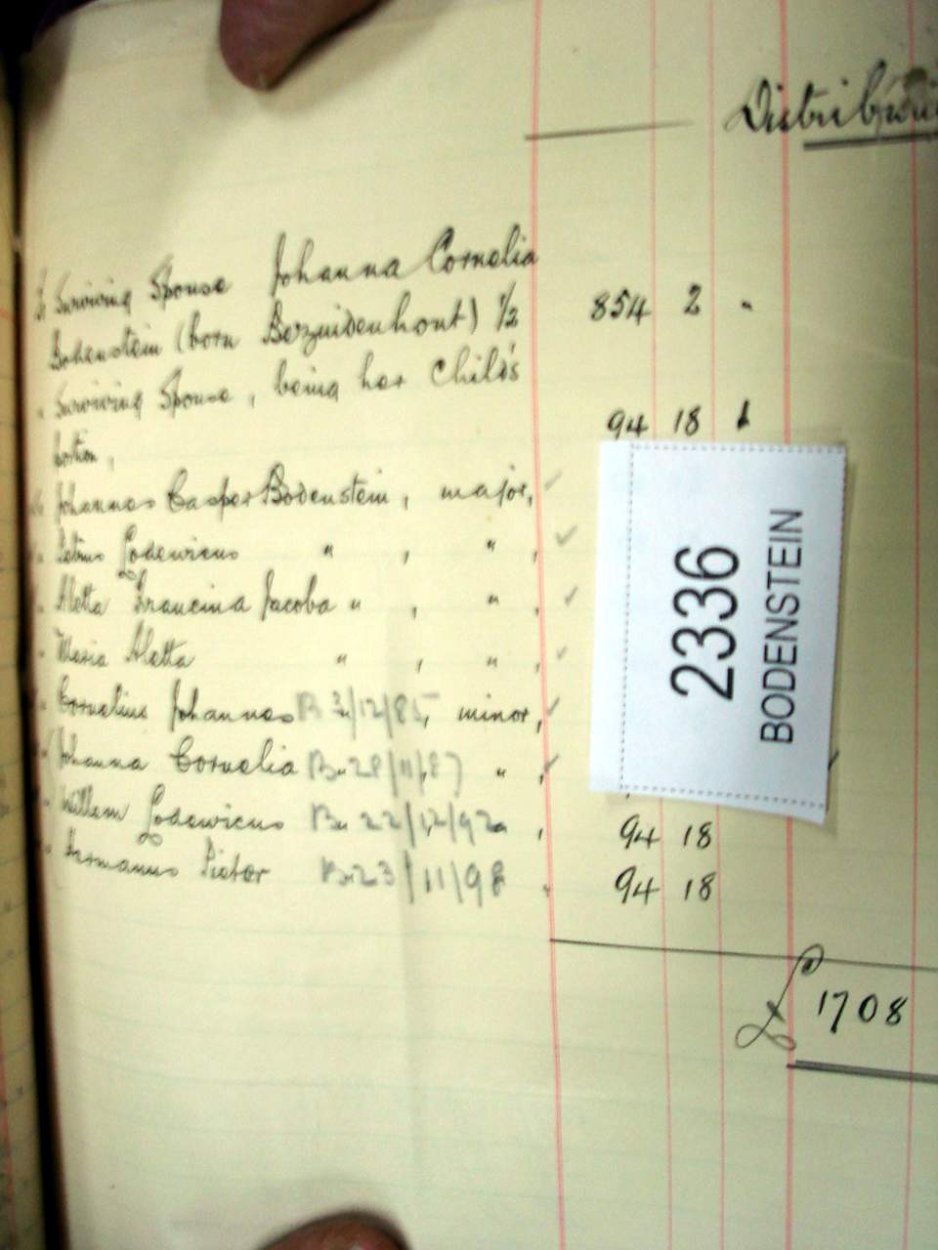 Distribu
To Surviving Spouse Johanna Cornelia
Bodenstein (born Bezuidenhout) 1/2 854 2 "
" Surviving Spouse, being her Child's
portion, 94 18
Johannes Casper Bodenstein, major,
" Petrus Lodewicus " , " ,
" Aletta Francina Jacoba " , " ,
" Maria Aletta " , " ,
" Cornelius Johannes B 2/12/85, minor,
" Johanna Cornelia B. 28/11/87 " ,
" Willem Lodewicus B. 22/12/92 , 94 18
" Hermanus Pieter B. 23/11/98 " 94 18
£ 1708
2336
BODENSTEIN